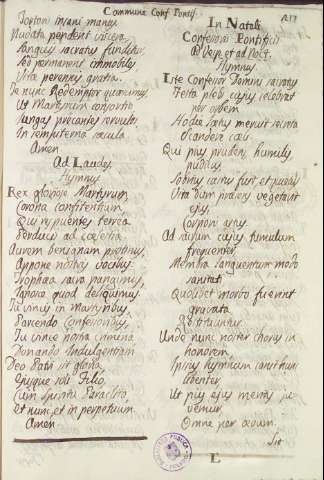 Commune Conf. Pontif.
217
Tortoris insani manus
Nudata pendent viscera
Sanguis sacratus funditur,
Sed permanent immobiles
Vitæ perennis gratia.
Te nunc Redemptor quæsumus
Ut Martyrum consortio
Jungas precantes servulos
In sempiterna sæcula
Amen
Ad Laudes
Hymnus
Rex gloriose Martyrum
Corona confitentium,
Qui respuentes terrea
Perducis ad cœlestia
Aurem benignam protinus
Appone nostris vocibus
Trophæa sacra pangimus,
Ignosce quod deliquimus
Tu vincis in Martyribus
Parcendo Confessoribus,
Tu vince nostra crimina
Donando indulgentiam
Deo Patri sit gloria,
Ejusque soli Filio,
Cum Spiritu Paraclito,
Et nunc et in perpetuum.
Amen
In Natali
Confessoris Pontificis
Ad Vesp. et ad Noct.
Hymnus
Iste Confessor Domini sacratus
Festa plebs cujus celebrat
per orbem
Hodie lætus meruit secreta
Scandere cœli.
Qui pius prudens, humilis
pudicus
Sobrius castus fuit, et quietus
Vita dum præsens vegetavit
ejus,
Corporis artus
Ad sacrum cujus tumulum
frequenter
Membra languentum modo
sanitati
Quolibet morbo fuerint
gravata
Restituuntur
Unde nunc noster chorus in
honorem,
Ipsius hymnum canit hunc
libenter
Ut piis ejus meritis ju
vemur
Omne per ævum.
Sit